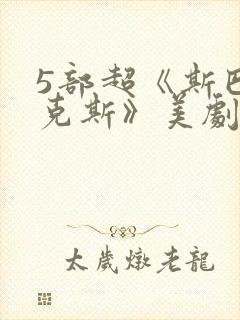 5部超《斯巴
克斯》美劇
太歲燉老龍